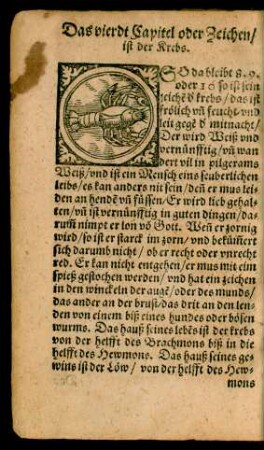 Das vierdt Capitel oder Zeichen/
ist der Krebs.
SO da bleibt 8. 9.
oder 10 so ist sein
zeichē d̄ krebs/ das ist
frölich vn̄ feucht/ vnd
leit gegē d̄ mitnacht/
Der wird Weiß vnd
vernünfftig/ vn̄ wan
dert vil in pilgerams
Weiß/ vnd ist ein Mensch eins seuberlichen
leibs/ es kan anders nit sein/ den̄ er mus lei-
den an hendē vn̄ füssen/ Er wird lieb gehal-
ten/ vn̄ ist vernünfftig in guten dingen/ da-
rum̄ nimpt er lon vō Gott. Wen̄ er zornig
wird/ so ist er starck im zorn/ vnd bekūm̄ert
sich darumb nicht/ ob er recht oder vnrecht
red. Er kan nicht entgehen/ er mus mit eim
spieß gestochen werden/ vnd hat ein zeichen
in den winckeln der augē/ oder des munds/
das ander an der brust/ das drit an den len-
den von einem biß eines hundes oder bösen
wurms. Das hauß seines lebēs ist der krebs
von der helfft des Brachmons biß in die
helfft des Hewmons. Das hauß seines ge-
wins ist der Löw/ von der helfft des Hew-
mons